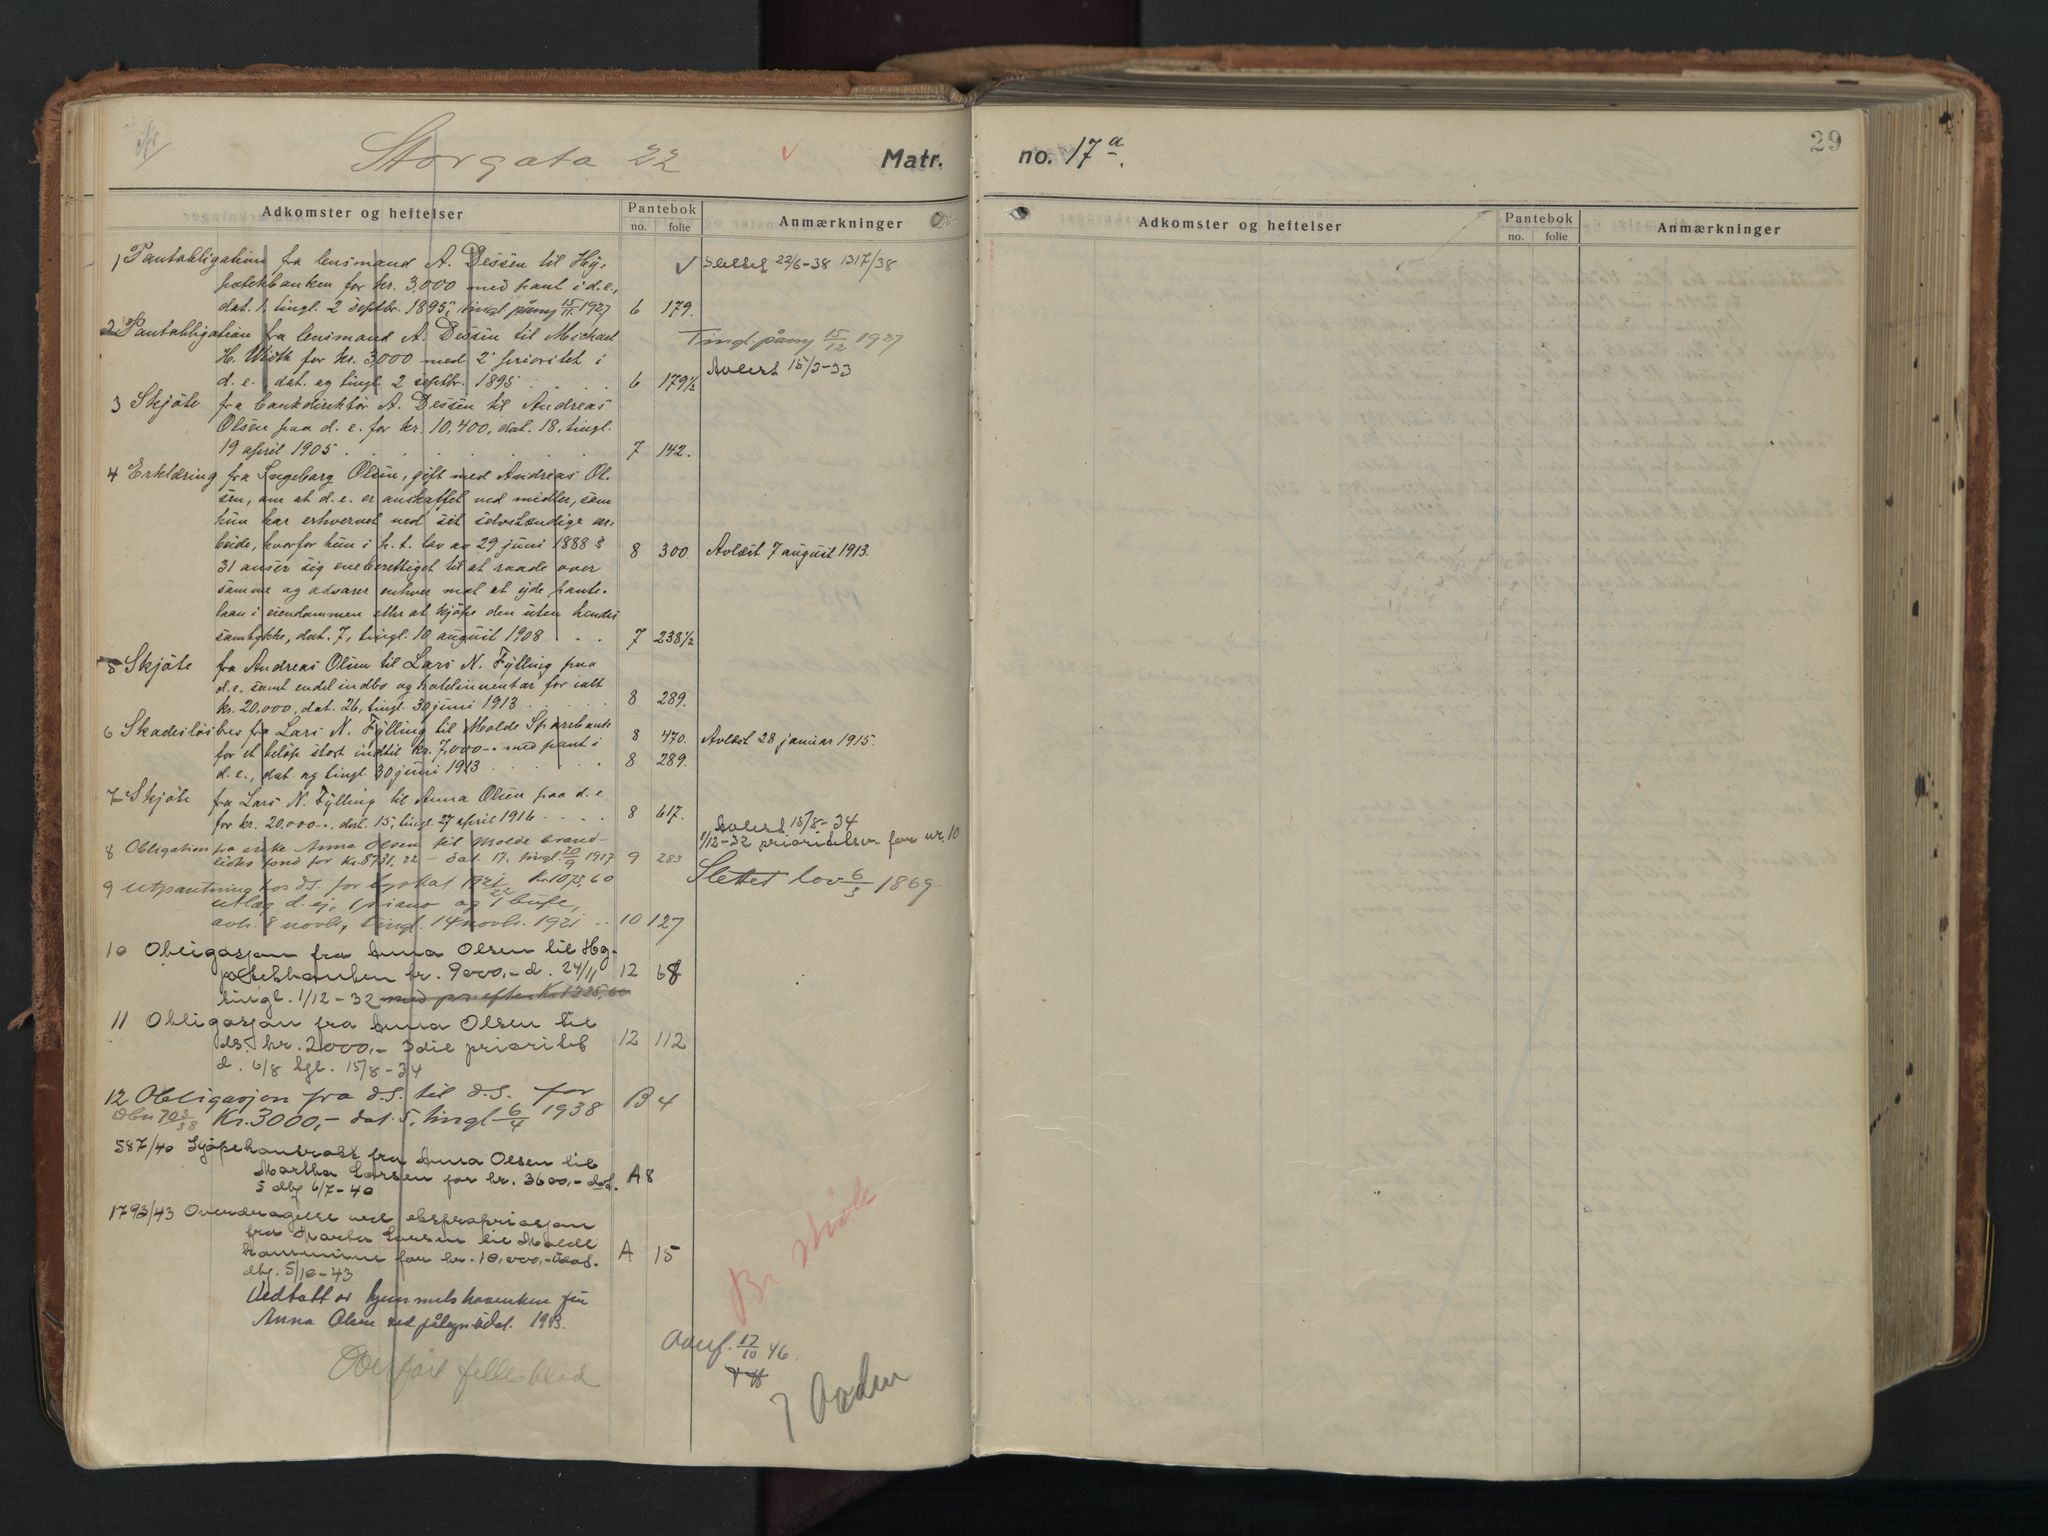 Storgata 22
Matr. no. 17 a.
29
Adkomster og heftelser
Pantebok
no. folie
Anmærkninger
Adkomster og heftelser
Pantebok
no. folie
Anmærkninger
1 Pantobligation fra lensmand A. Dessen til Hy-
potekbanken for kr. 3,000 med pant i d.e.,
dat. 1, tingl. 2 septbr. 1895, tingl. påny 15/11 1927 6 179.
Slettet 22/6-38 1317/38
2 Pantobligation fra lensmand A. Dessen til Michael
H. Width for kr. 3,000 med 2' prioritet i
d. e., dat. og tingl. 2 septbr. 1895 6 179½
Tingl. påny 15/12 1927
Avlest 15/3-33
3 Skjøte fra bankdirektør A. Dessen til Andreas
Olsen paa d. e. for kr. 10,400, dat. 18, tingl.
19 april 1905 7 142.
4 Erklæring fra Ingeborg Olsen, gift med Andreas Ol-
sen, om at d. e. er anskaffet ved midler, som
hun har erhvervet ved sit selvstændige ar-
beide, hvorfor hun i h. t. lov av 29 juni 1888 §
31 anser sig eneberettiget til at raade over
samme og advarer enhver mot at yde pante-
laan i eiendommen eller at kjøpe den uten hendes
samtykke, dat. 7, tingl. 10 august 1908 7 238½
8 300. Avlæst 7 august 1913.
5 Skjøte fra Andreas Olsen til Lars N. Fylling paa
d. e. samt endel indbo og hotelinventar for ialt
kr. 20,000, dat. 26, tingl. 30 juni 1913 8 289.
6 Skadesløsbrev fra Lars N. Fylling til Molde Sparebank
for et beløp stort indtil kr. 7,000-. med pant i
d. e., dat. og tingl. 30 juni 1913
8 470. Avlæst 28 januar 1915.
8 289.
7 Skjøte fra Lars N. Fylling til Anna Olsen paa d. e
for kr. 20,000-., dat. 15, tingl. 27 april 1916 8 617.
8 Obligation fra enke Anna Olsen til Molde brand-
lidtes fond for kr. 8731,22 – dat. 17, tingl. 20/9 1917 9 283
Avlest 15/8-34
1/12-32 prioritetsv for nr. 10
9 Utpantning hos d.s. for byskat 1921/22 Kr. 1075,60
utlæg d. ej, 1 piano og 1 bufe,
avh. 8 novbr, tingl. 14 novbr. 1921 10 127
Slettet lov 6/3 1869.
10 Obligasjon fra Anna Olsen til Hy-
potekbanken kr. 9000,- d. 24/11 12 68
tingl. 1/12-32 med pr. efter Kr. 1225,60
11 Obligasjon fra Anna Olsen til
ds. kr. 2000,- 3die prioritet 12 112
d. 6/8 tgl. 15/8-34
12 Obligasjon fra d.s. til d.s. for B 4
Dbn 703/38 Kr. 3000,- dat. 5, tingl. 6/4 1938
587/40 Kjøpekontrakt fra Anna Olsen til
Martha Larsen for kr. 3600,- dat. A 8
5 dbf 6/7-40
1793/43 Overdragelse ved ekspropriasjon
fra Martha Larsen til Molde
kommune for kr. 10,000,- A 15
dbf. 5/10-43
Vedtatt av hjemmelshaveren fru
Anna Olsen ved påtegn. dat. 1943.
Overført fellesblad
Br. skiøte
Overf. 17/10 46.